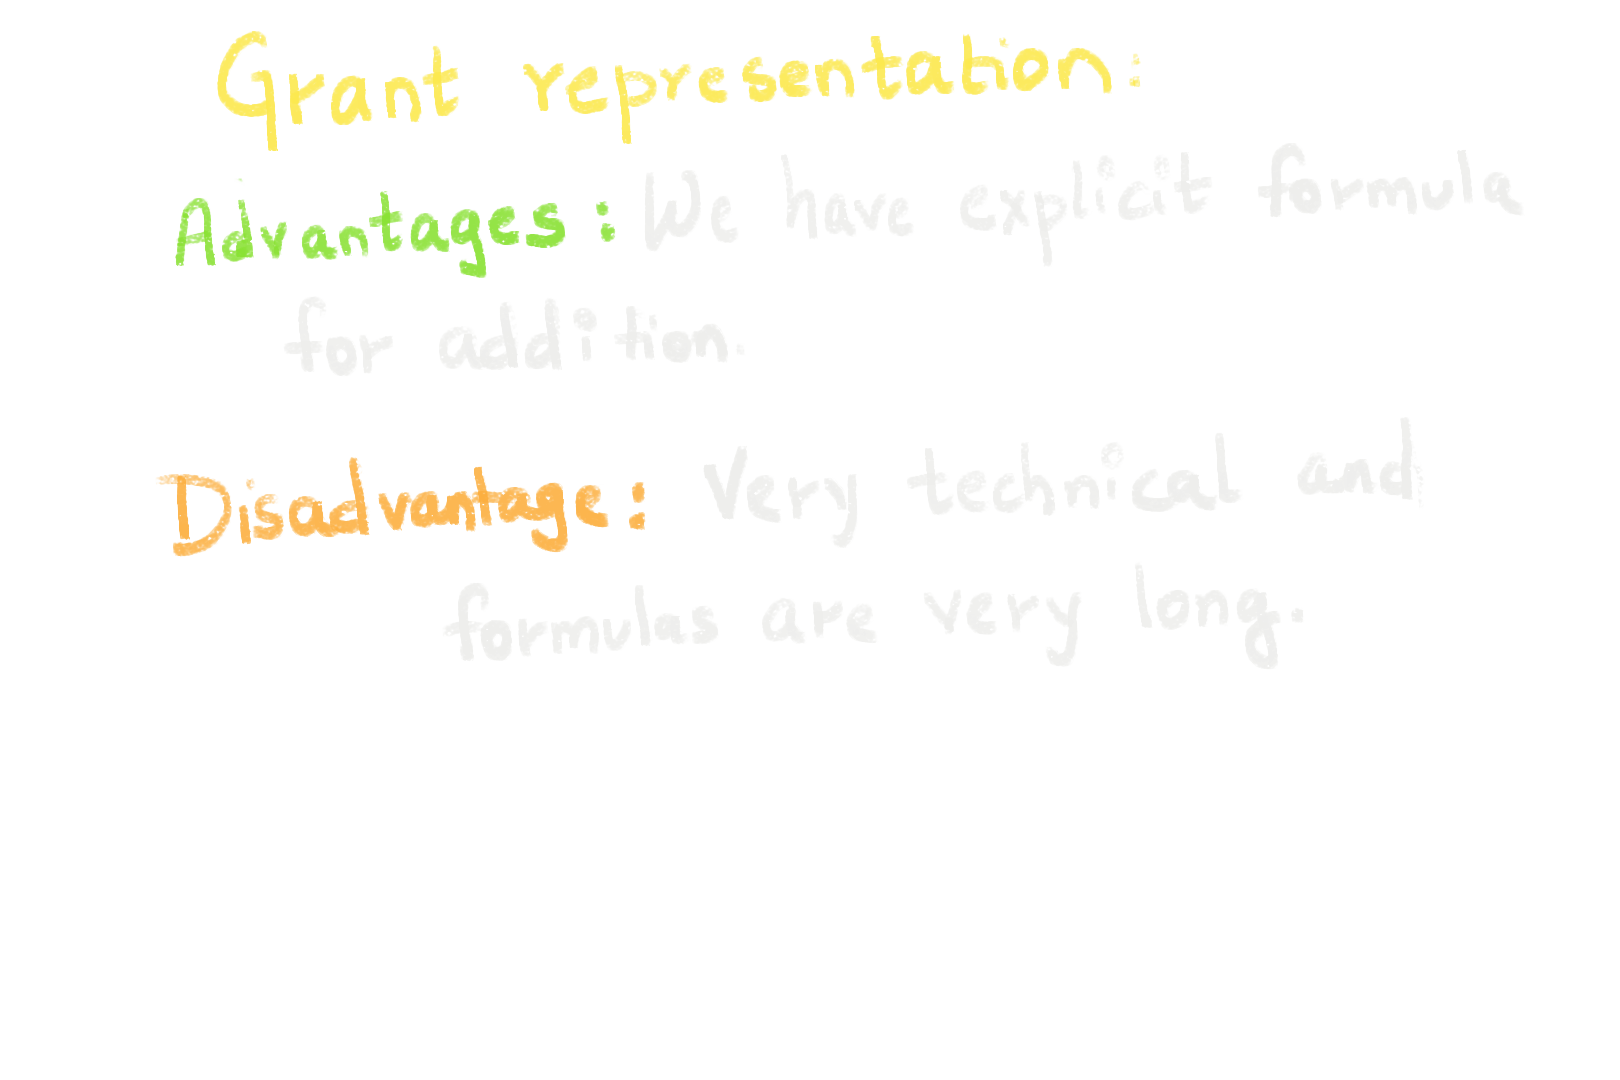 Grant representation:
Advantages: We have explicit formula
for addition.
Disadvantage: Very technical and
formulas are very long.